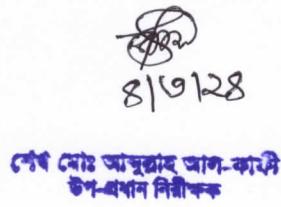 ৪|৩|২৪
শেখ মোঃ আব্দুল্লাহ আল-কাফী
উপ-প্রধান নিরীক্ষক